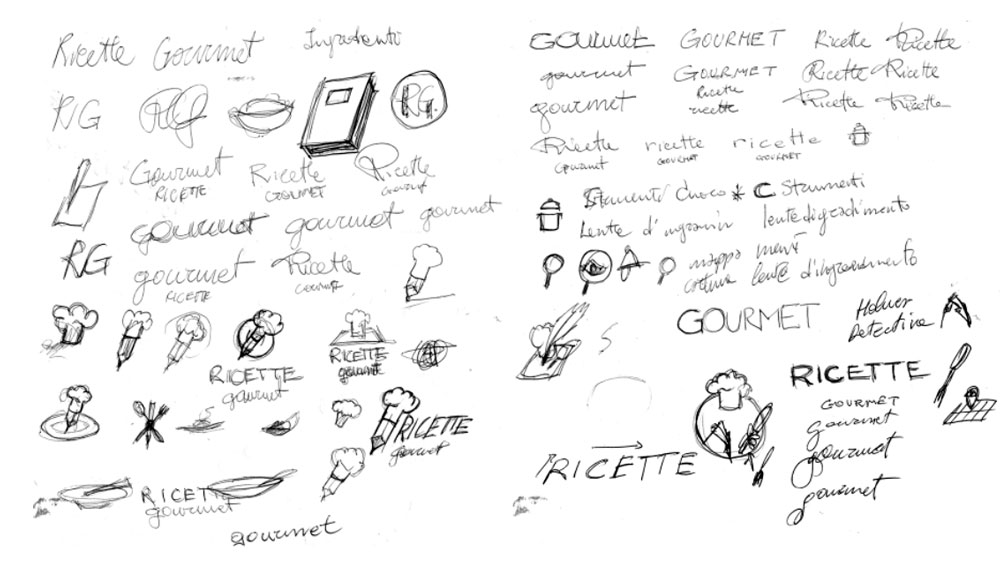 Ricette Gourmet
RG
RG.
Gourmet
RICETTE
Ricette
GOURMET
Ricette
Gourmet
gourmet gourmet gourmet
RG
gourmet
RICETTE
Ricette
GOURMET
RICETTE
gourmet
RICETTE
gourmet
RICETTE
gourmet
RICETTE
gourmet
gourmet
GOURMET GOURMET Ricette Ricette
gourmet GOURMET Ricette Ricette
Ricette
gourmet ricette Ricette Ricette
Ricette ricette ricette
Gourmet GOURMET GOURMET
Strumenti Cuoco C Strumenti
Lente d' lente di
menù
GOURMET
Detective
RICETTE
GOURMET
gourmet
gourmet
gourmet
RICETTE